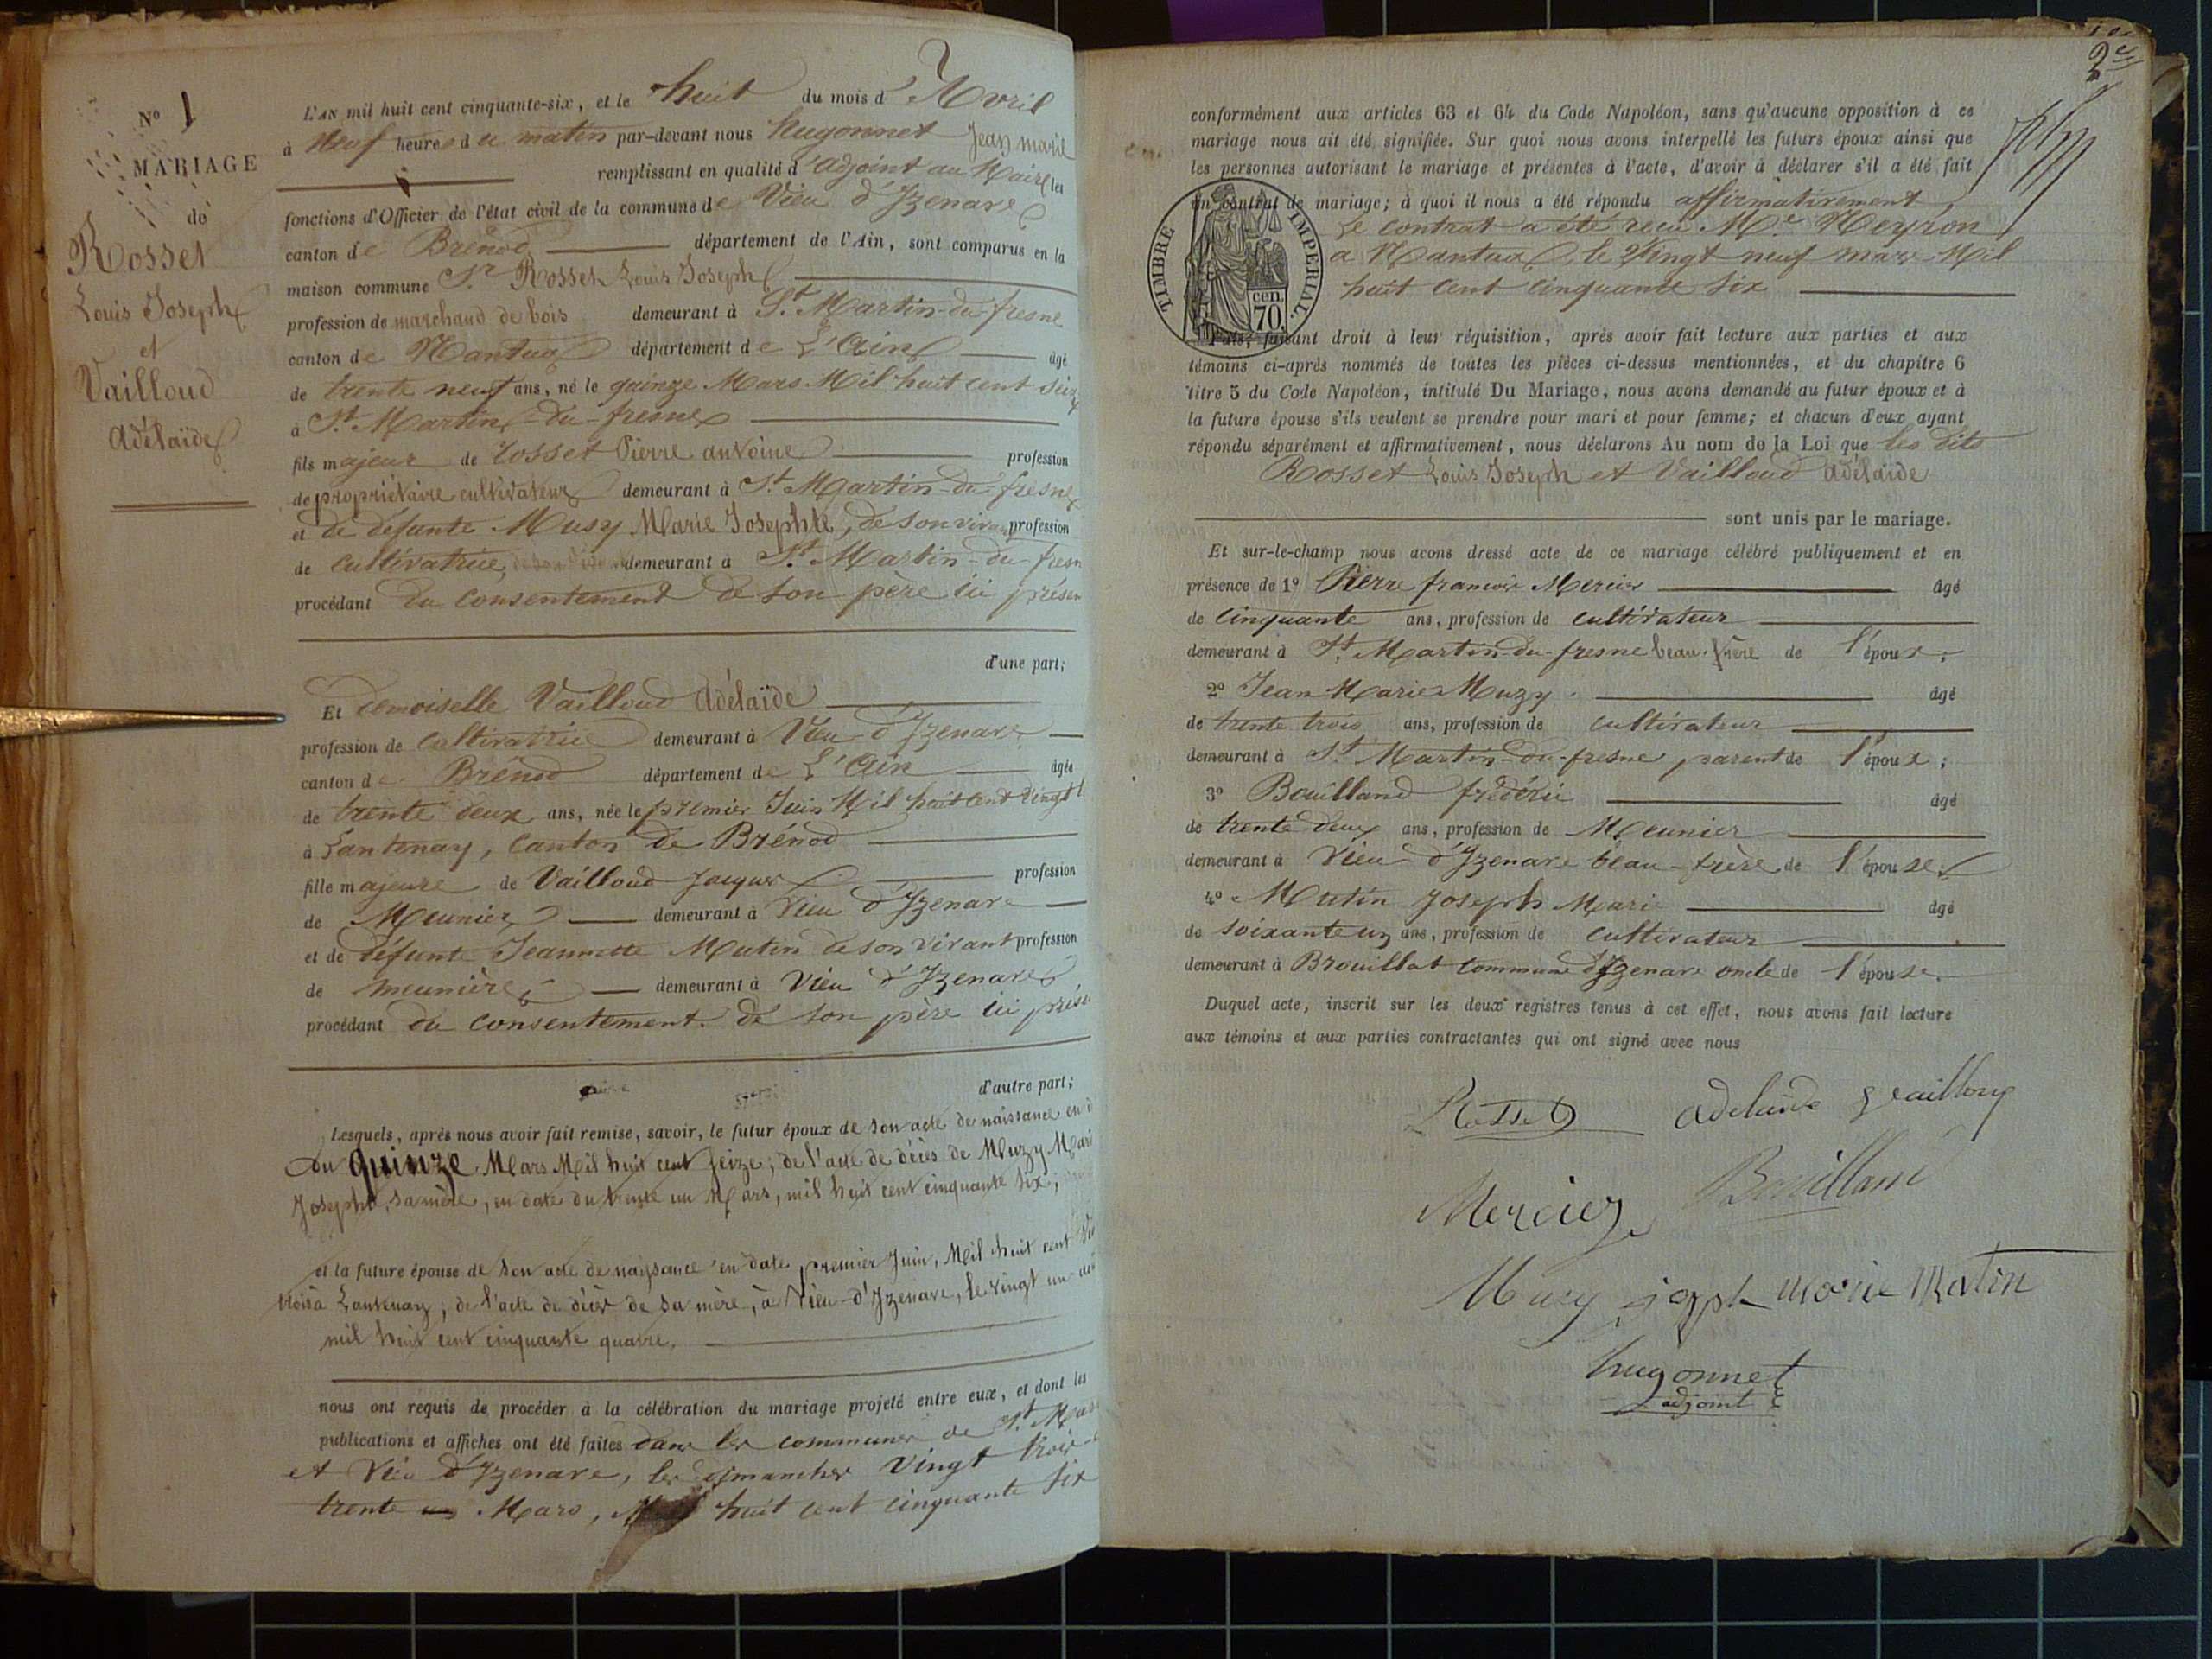 N° 1
MARIAGE
de
Rosset
Louis Joseph
et
Vailloud
Adélaïde
L'AN mil huit cent cinquante-six, et le huit du mois d'Avril
à Neuf heures du matin par-devant nous hugonnet Jean marie
remplissant en qualité d'adjoint au Maire les
fonctions d'Officier de l'état civil de la commune de Vieu d'Izenave
canton de Brénod département de l'Ain, sont comparus en la
maison commune Sr Rosset Louis Joseph
profession de marchand de bois demeurant à St Martin-du-fresne
canton de Nantua département de L'Ain âgé
de trente neuf ans, né le quinze Mars Mil huit cent seize
à St Martin-du-fresne
fils majeur de Rosset Pierre antoine profession
de propriétaire cultivateur demeurant à St Martin-du-fresne
et de défunte Musy Marie Josephte, de son vivant profession
de cultivatrice, demeurant à St Martin-du-fresn
procédant du consentement de son père ici présen
d'une part;
Et demoiselle Vailloud Adélaïde
profession de cultivatrice demeurant à Vieu d'Izenave
canton de Brénod département de L'Ain âgée
de trente deux ans, née le premier Juin Mil huit cent vingt
à Lantenay, Canton de Brénod
fille majeure de Vailloud Jacques profession
de Meunier demeurant à Vieu d'Izenave
et de défunte Jeannette Mutin de son vivant profession
de meunière demeurant à Vieu d'Izenave
procédant du consentement de son père ici prése
d'autre part;
Lesquels, après nous avoir fait remise, savoir, le futur époux de son acte de naissance en d
du quinze Mars Mil huit cent seize; de l'acte de décès de Muzy Mari
Josephte, sa mère, en date du trente un Mars, mil huit cent cinquante six;
et la future épouse de son acte de naissance en date premier Juin, Mil huit cent
trois à Lantenay; de l'acte de décès de sa mère, à Vieu-d'Izenave, le vingt un
mil huit cent cinquante quatre.
nous ont requis de procéder à la célébration du mariage projeté entre eux, et dont les
publications et affiches ont été faites dans les communes de St Mar
et Vieu d'Izenave, les dimanches vingt trois
trente un Mars, Mil huit cent cinquante six
2e
conformément aux articles 63 et 64 du Code Napoléon, sans qu'aucune opposition à ce
mariage nous ait été signifiée. Sur quoi nous avons interpellé les futurs époux ainsi que
les personnes autorisant le mariage et présentes à l'acte, d'avoir à déclarer s'il a été fait
un contrat de mariage; à quoi il nous a été répondu affirmativement
Le contrat a été reçu Me Neyron
a Nantua, le Vingt neuf mars Mil
huit cent cinquante six
TIMBRE IMPERIAL
cen.
70.
Puis, faisant droit à leur réquisition, après avoir fait lecture aux parties et aux
témoins ci-après nommés de toutes les pièces ci-dessus mentionnées, et du chapitre 6
titre 5 du Code Napoléon, intitulé Du Mariage, nous avons demandé au futur époux et à
la future épouse s'ils veulent se prendre pour mari et pour femme; et chacun d'eux ayant
répondu séparément et affirmativement, nous déclarons Au nom de la Loi que les dits
Rosset Louis Joseph et Vailloud Adélaïde
sont unis par le mariage.
Et sur-le-champ nous avons dressé acte de ce mariage célébré publiquement et en
présence de 1° Pierre francois Mercier âgé
de cinquante ans, profession de cultivateur
demeurant à St Martin-du-fresne beau-frère de l'époux;
2° Jean Marie Muzy âgé
de trente trois ans, profession de cultivateur
demeurant à St Martin-du-fresne, parent de l'époux;
3° Bouilland frédéric âgé
de trente deux ans, profession de Meunier
demeurant à Vieu-d'Izenave beau-frère de l'épouse;
4° Mutin Joseph Marie âgé
de soixante un ans, profession de cultivateur
demeurant à Brouillat commune d'Izenave oncle de l'épouse.
Duquel acte, inscrit sur les deux registres tenus à cet effet, nous avons fait lecture
aux témoins et aux parties contractantes qui ont signé avec nous
Rosset
Mercier Bouilland
Muzy joseph marie Mutin
hugonnet
adjoint